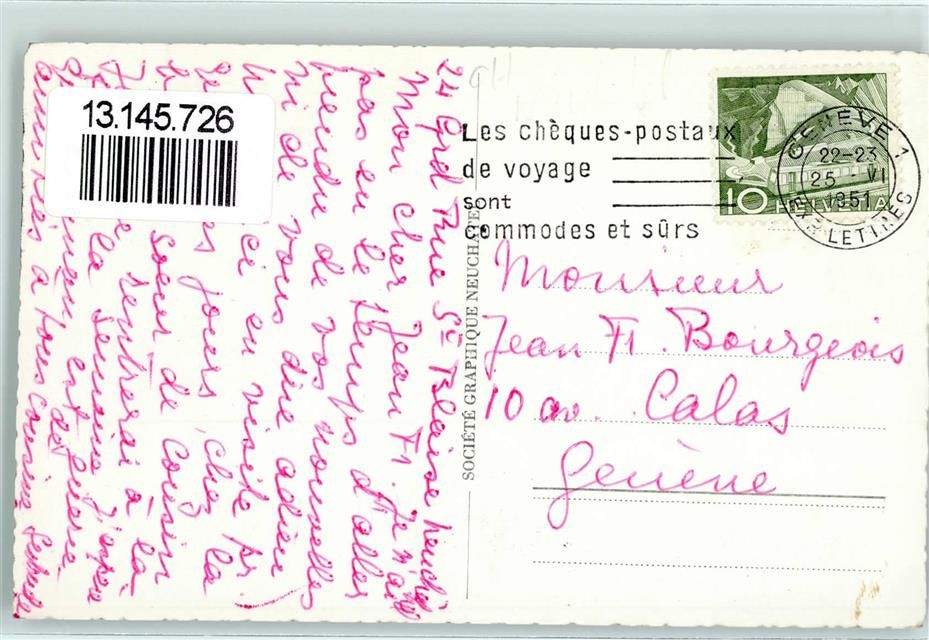 13.145.726
Les chèques-postaux
de voyage
sont
commodes et sûrs
GENÈVE 1
22-23
25 VI
1951
EXP. LETTRES
10 HELVETIA
SOCIÉTÉ GRAPHIQUE NEUCHÂTEL
Monsieur
Jean Fr. Bourgeois
10 av. Calas
Genève
24 Grd Rue St Blaise Neuch
Mon cher Jean Fr. Je n'ai
pas eu le temps d'aller
prendre de vos nouvelles
ni de vous dire adieu
ici en visite pr
jours chez la
soeur de Cousin
rentrerai à la
de la semaine J'espère
à tous Cousine